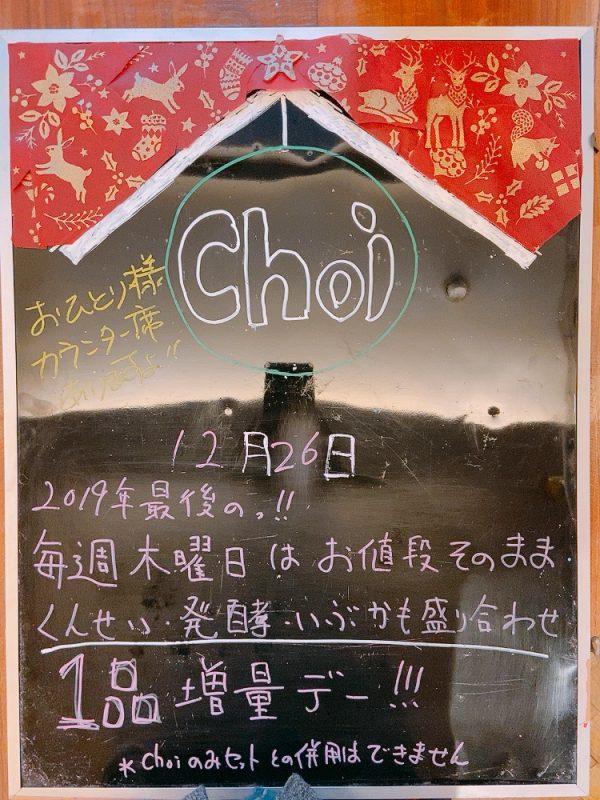 Choi
おひとり様
カウンター席
ありますよ!!
12月26日
2019年最後のっ!!
毎週木曜日はお値段そのまま
くんせい・発酵・いぶかも盛り合わせ
1品増量デー!!!
*choiのみセットとの併用はできません